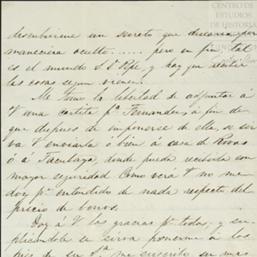 CENTRO DE
ESTUDIOS
DE HISTORIA
descubrirme un secreto que deseaba por
maneciera oculto ...... pero en fin, tal
es el mundo S.r Pepe, y hay que sentir
las cosas segun vienen.
Me tomo la libertad de adjuntar á
V una cartita p.a Fernandez, á fin de
que despues de imponerse de ella, se sir
va V enviarla ó bien á casa de Rivas
ó á Tacubaya, donde pueda recibirla con
mayor seguridad. Como verá V no me
doy p.r entendido de nada respecto del
precio de bonos.
Doy á V las gracias p.r todo, y su
plicandole se sirva ponerme á los
pies de su S.ra me suscribo su mas